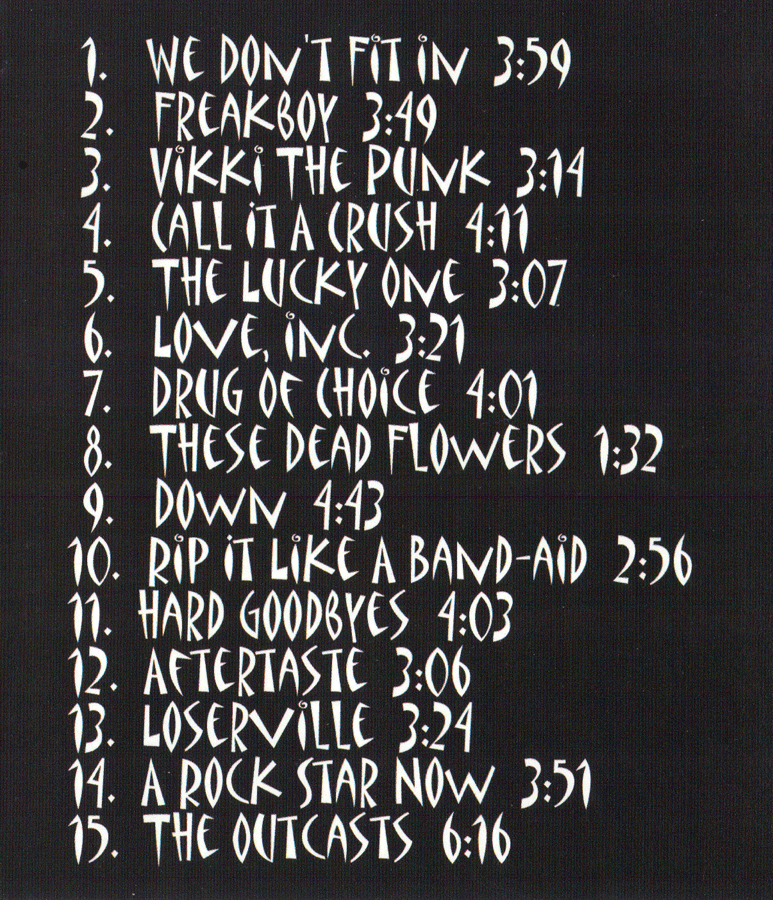 1. WE DON'T FIT IN 3:59
2. FREAKBOY 3:49
3. VIKKI THE PUNK 3:14
4. CALL IT A CRUSH 4:11
5. THE LUCKY ONE 3:07
6. LOVE, INC. 3:21
7. DRUG OF CHOICE 4:01
8. THESE DEAD FLOWERS 1:32
9. DOWN 4:43
10. RIP IT LIKE A BAND-AID 2:56
11. HARD GOODBYES 4:03
12. AFTERTASTE 3:06
13. LOSERVILLE 3:24
14. A ROCK STAR NOW 3:51
15. THE OUTCASTS 6:16